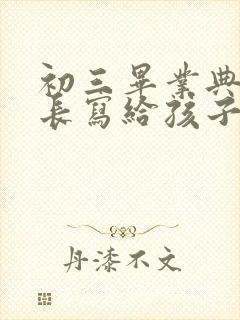 初三畢業典
長寫給孩子
丹漆不文